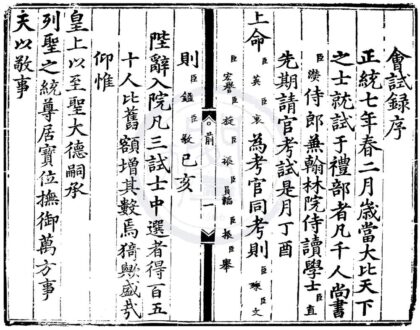 會試錄序
正統七年春二月歲當大比天下
之士就試于禮部者凡千人尚書
臣濙侍郎兼翰林院侍讀學士臣直
先期請官考試是月丁酉
上命臣英臣衷為考官同考則臣臣文
前 一
臣宏譽臣臣振臣員韜臣振臣舉
則臣鎰臣敬己亥
陛辭入院凡三試士中選者得百五
十人比舊額增其數焉猗歟盛哉
仰惟
皇上以至聖大德嗣承
列聖之統尊居寶位撫御萬方事
天以敬事